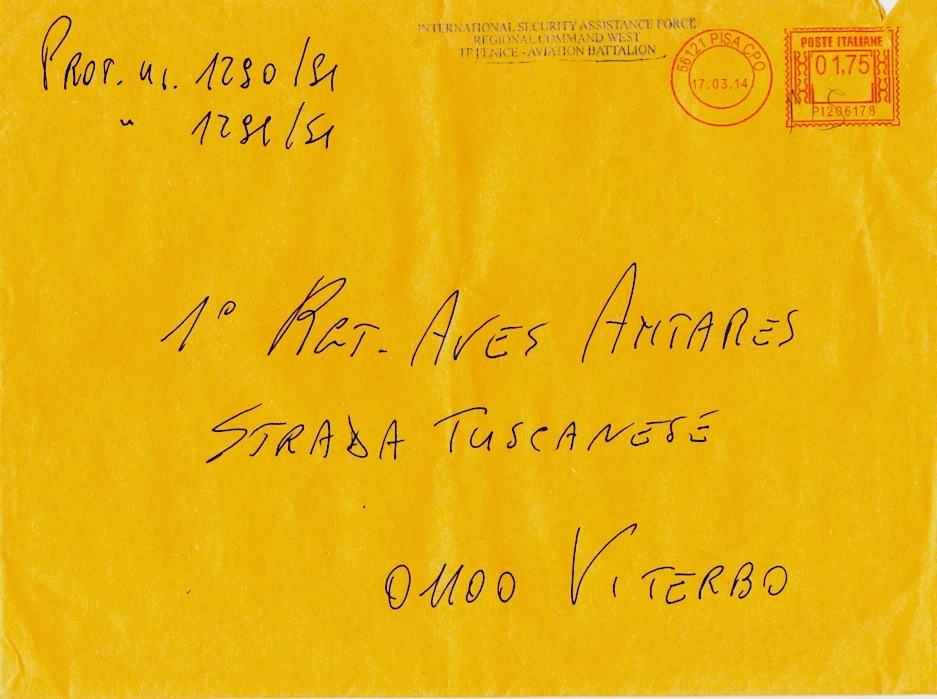 INTERNATIONAL SECURITY ASSISTANCE FORCE
REGIONAL COMMAND WEST
TF FENICE - AVIATION BATTALION
56121 PISA CPO
17.03.14
POSTE ITALIANE
01,75
P1206178
PROT. nr. 1290/S1
" 1291/S1
1° RGT. AVES ANTARES
STRADA TUSCANESE
01100 VITERBO